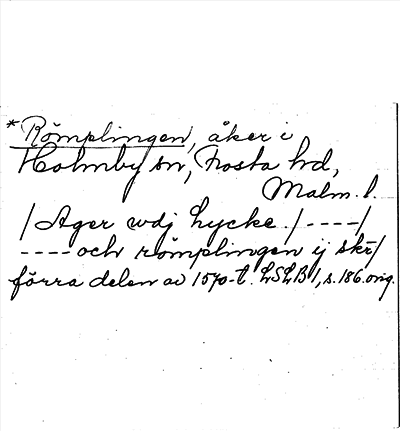 *Römplingen, åker i
Holmby sn, Frosta hd,
Malm. l.
/Ager wdj Lycke./----/
----och römplingen ij skr/
förra delen av 1570-t. LSLB 1, s. 186. orig.